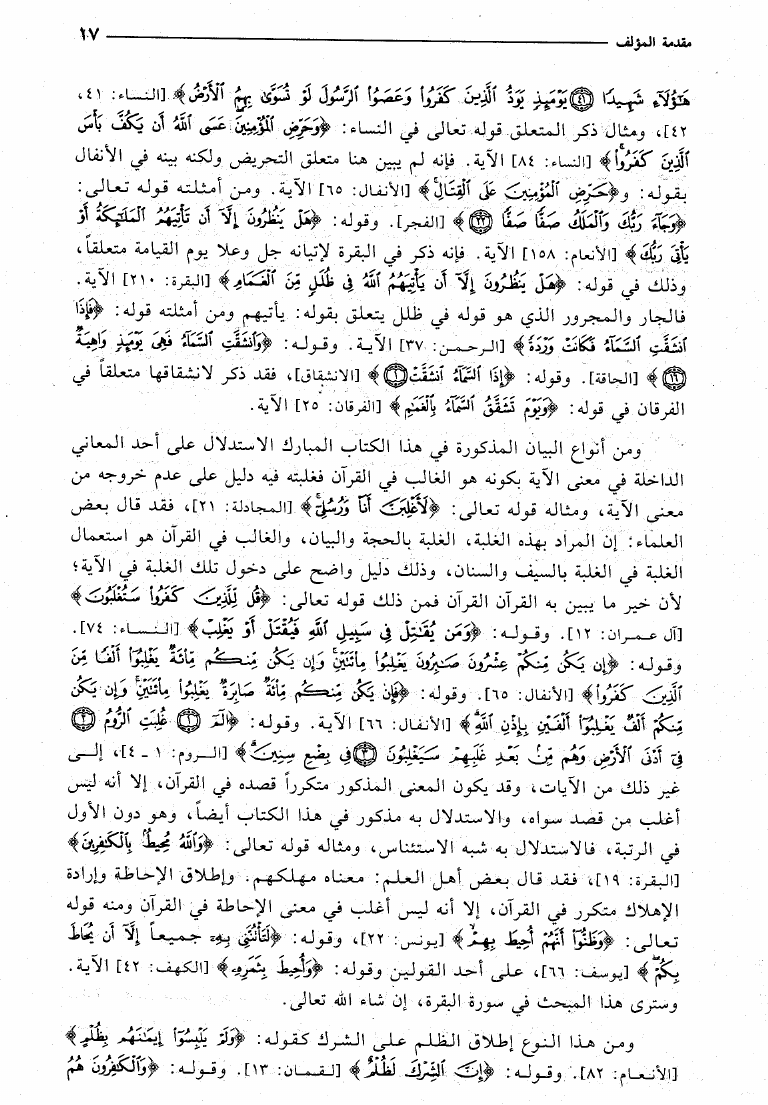 مقدمة المؤلف ٢٧
هَٰٓؤُلَآءِ شَهِيدًا ﴿٤١﴾ يَوْمَئِذٍ يَوَدُّ ٱلَّذِينَ كَفَرُوا۟ وَعَصَوُا۟ ٱلرَّسُولَ لَوْ تُسَوَّىٰ بِهِمُ ٱلْأَرْضُ﴾ [النساء: ٤١،
٤٢]، ومثال ذكر المتعلق قوله تعالى في النساء: ﴿وَحَرِّضِ ٱلْمُؤْمِنِينَ عَسَى ٱللَّهُ أَن يَكُفَّ بَأْسَ
ٱلَّذِينَ كَفَرُوا۟ۚ﴾ [النساء: ٨٤] الآية. فإنه لم يبين هنا متعلق التحريض ولكنه بينه في الأنفال
بقوله: و﴿حَرِّضِ ٱلْمُؤْمِنِينَ عَلَى ٱلْقِتَالِۚ﴾ [الأنفال: ٦٥] الآية. ومن أمثلته قوله تعالى:
﴿وَجَآءَ رَبُّكَ وَٱلْمَلَكُ صَفًّا صَفًّا ﴿٢٢﴾﴾ [الفجر]. وقوله: ﴿هَلْ يَنظُرُونَ إِلَّآ أَن تَأْتِيَهُمُ ٱلْمَلَٰٓئِكَةُ أَوْ
يَأْتِىَ رَبُّكَ﴾ [الأنعام: ١٥٨] الآية. فإنه ذكر في البقرة لإتيانه جل وعلا يوم القيامة متعلقاً،
وذلك في قوله: ﴿هَلْ يَنظُرُونَ إِلَّآ أَن يَأْتِيَهُمُ ٱللَّهُ فِى ظُلَلٍ مِّنَ ٱلْغَمَامِ﴾ [البقرة: ٢١٠] الآية.
فالجار والمجرور الذي هو قوله في ظلل يتعلق بقوله: يأتيهم ومن أمثلته قوله: ﴿فَإِذَا
ٱنشَقَّتِ ٱلسَّمَآءُ فَكَانَتْ وَرْدَةً﴾ [الرحمن: ٣٧] الآية. وقوله: ﴿وَٱنشَقَّتِ ٱلسَّمَآءُ فَهِىَ يَوْمَئِذٍ وَاهِيَةٌ
﴿١٦﴾﴾ [الحاقة]. وقوله: ﴿إِذَا ٱلسَّمَآءُ ٱنشَقَّتْ ﴿١﴾﴾ [الانشقاق]، فقد ذكر لانشقاقها متعلقاً في
الفرقان في قوله: ﴿وَيَوْمَ تَشَقَّقُ ٱلسَّمَآءُ بِٱلْغَمَٰمِ﴾ [الفرقان: ٢٥] الآية.
ومن أنواع البيان المذكورة في هذا الكتاب المبارك الاستدلال على أحد المعاني
الداخلة في معنى الآية بكونه هو الغالب في القرآن فغلبته فيه دليل على عدم خروجه من
معنى الآية، ومثاله قوله تعالى: ﴿لَأَغْلِبَنَّ أَنَا۠ وَرُسُلِىٓۚ﴾ [المجادلة: ٢١]، فقد قال بعض
العلماء: إن المراد بهذه الغلبة، الغلبة بالحجة والبيان، والغالب في القرآن هو استعمال
الغلبة في الغلبة بالسيف والسنان، وذلك دليل واضح على دخول تلك الغلبة في الآية؛
لأن خير ما يبين به القرآن القرآن فمن ذلك قوله تعالى: ﴿قُل لِّلَّذِينَ كَفَرُوا۟ سَتُغْلَبُونَ﴾
[آل عمران: ١٢]. وقوله: ﴿وَمَن يُقَٰتِلْ فِى سَبِيلِ ٱللَّهِ فَيُقْتَلْ أَوْ يَغْلِبْ﴾ [النساء: ٧٤].
وقوله: ﴿إِن يَكُن مِّنكُمْ عِشْرُونَ صَٰبِرُونَ يَغْلِبُوا۟ مِا۟ئَتَيْنِۚ وَإِن يَكُن مِّنكُم مِّا۟ئَةٌ يَغْلِبُوٓا۟ أَلْفًا مِّنَ
ٱلَّذِينَ كَفَرُوا۟﴾ [الأنفال: ٦٥]. وقوله: ﴿فَإِن يَكُن مِّنكُم مِّا۟ئَةٌ صَابِرَةٌ يَغْلِبُوا۟ مِا۟ئَتَيْنِۚ وَإِن يَكُن
مِّنكُمْ أَلْفٌ يَغْلِبُوٓا۟ أَلْفَيْنِ بِإِذْنِ ٱللَّهِۗ﴾ [الأنفال: ٦٦] الآية. وقوله: ﴿الٓمٓ ﴿١﴾ غُلِبَتِ ٱلرُّومُ ﴿٢﴾
فِىٓ أَدْنَى ٱلْأَرْضِ وَهُم مِّنۢ بَعْدِ غَلَبِهِمْ سَيَغْلِبُونَ ﴿٣﴾ فِى بِضْعِ سِنِينَۗ﴾ [الروم: ١ - ٤]، إلى
غير ذلك من الآيات، وقد يكون المعنى المذكور متكرراً قصده في القرآن، إلا أنه ليس
أغلب من قصد سواه، والاستدلال به مذكور في هذا الكتاب أيضاً، وهو دون الأول
في الرتبة، فالاستدلال به شبه الاستئناس، ومثاله قوله تعالى: ﴿وَٱللَّهُ مُحِيطٌۢ بِٱلْكَٰفِرِينَ﴾
[البقرة: ١٩]، فقد قال بعض أهل العلم: معناه مهلكهم. وإطلاق الإحاطة وإرادة
الإهلاك متكرر في القرآن، إلا أنه ليس أغلب في معنى الإحاطة في القرآن ومنه قوله
تعالى: ﴿وَظَنُّوٓا۟ أَنَّهُمْ أُحِيطَ بِهِمْۙ﴾ [يونس: ٢٢]، وقوله: ﴿لَتَأْتُنَّنِى بِهِۦٓ جميعاً إِلَّآ أَن يُحَاطَ
بِكُمْۖ﴾ [يوسف: ٦٦]، على أحد القولين وقوله: ﴿وَأُحِيطَ بِثَمَرِهِۦ﴾ [الكهف: ٤٢] الآية.
وسترى هذا المبحث في سورة البقرة، إن شاء الله تعالى.
ومن هذا النوع إطلاق الظلم على الشرك كقوله: ﴿وَلَمْ يَلْبِسُوٓا۟ إِيمَٰنَهُم بِظُلْمٍ﴾
[الأنعام: ٨٢]. وقوله: ﴿إِنَّ ٱلشِّرْكَ لَظُلْمٌ﴾ [لقمان: ١٣]. وقوله: ﴿وَٱلْكَٰفِرُونَ هُمُ